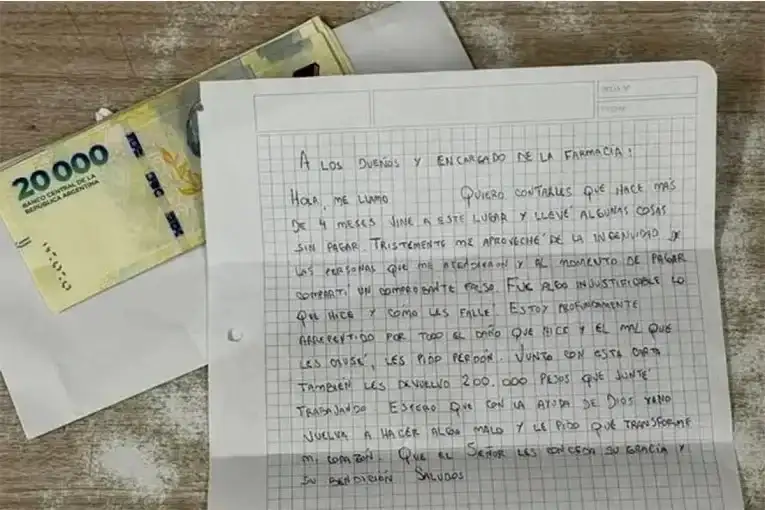 20 000
BANCO CENTRAL DE LA
REPÚBLICA ARGENTINA
A LOS DUEÑOS Y ENCARGADO DE LA FARMACIA:
HOLA, ME LLAMO QUIERO CONTARLES QUE HACE MÁS
DE 4 MESES VINE A ESTE LUGAR Y LLEVÉ ALGUNAS COSAS
SIN PAGAR. TRISTEMENTE ME APROVECHÉ DE LA INGENUIDAD DE
LAS PERSONAS QUE ME ATENDIERON Y AL MOMENTO DE PAGAR
COMPARTÍ UN COMPROBANTE FALSO. FUE ALGO INJUSTIFICABLE LO
QUE HICE Y CÓMO LES FALLÉ. ESTOY PROFUNDAMENTE
ARREPENTIDO POR TODO EL DAÑO QUE HICE Y EL MAL QUE
LES CAUSÉ, LES PIDO PERDÓN. JUNTO CON ESTA CARTA
TAMBIÉN LES DEVUELVO 200.000 PESOS QUE JUNTÉ
TRABAJANDO ESPERO QUE CON LA AYUDA DE DIOS YA NO
VUELVA A HACER ALGO MALO Y LE PIDO QUE TRANSFORME
MI CORAZÓN. QUE EL SEÑOR LES CONCEDA SU GRACIA Y
SU BENDICIÓN SALUDOS